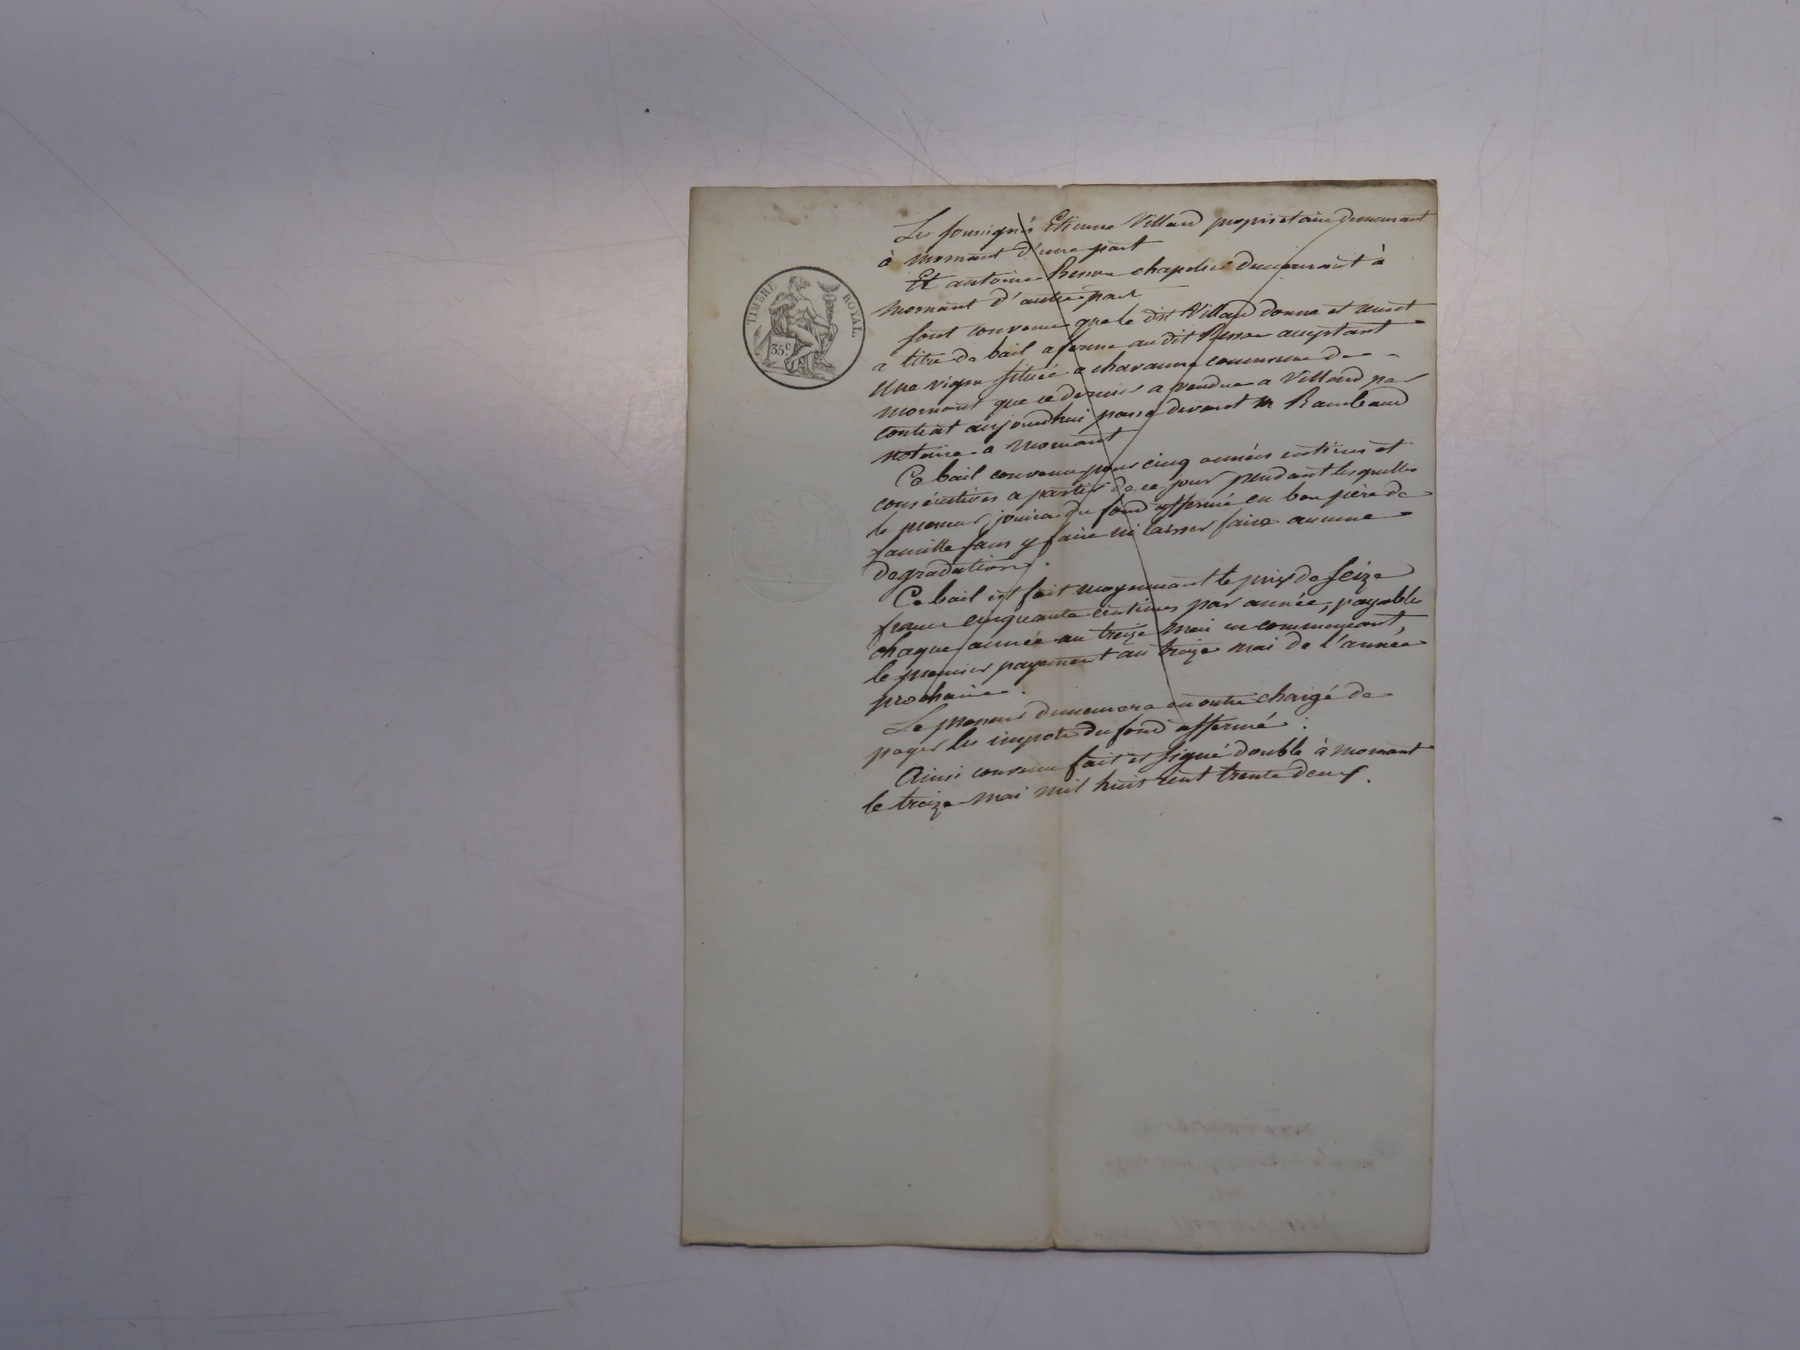 TIMBRE ROYAL.
35.c
Les soussignés Etienne Villard propriétaire demeurant
à mornant d'une part
Et antoine Besson chapelier demeurant à
mornant d'autre part
sont convenu que le dit Villard donne et remet
a titre de bail a ferme au dit Besson acceptant
Une vigne située a chavanne commune de
mornant que ce dernier a vendue a Villard par
contrat aujourdhui passé devant Me Rambaud
notaire a mornant
Ce bail convenu pour cinq années entières et
consécutives a partir de ce jour pendant lesquelles
le preneur jouira du fond affermé en bon père de
famille sans y faire ni laisser faire aucune
degradation.
Ce bail est fait moyennant le prix de seize
francs cinquante centimes par année, payable
chaque année au treize mai en commençant,
le premier payement au treize mai de l'année
prochaine.
Le preneur demeurera en outre chargé de
payer les impots du fond affermé.
Ainsi convenu fait et signé double à mornant
le treize mai mil huit cent trente deux.